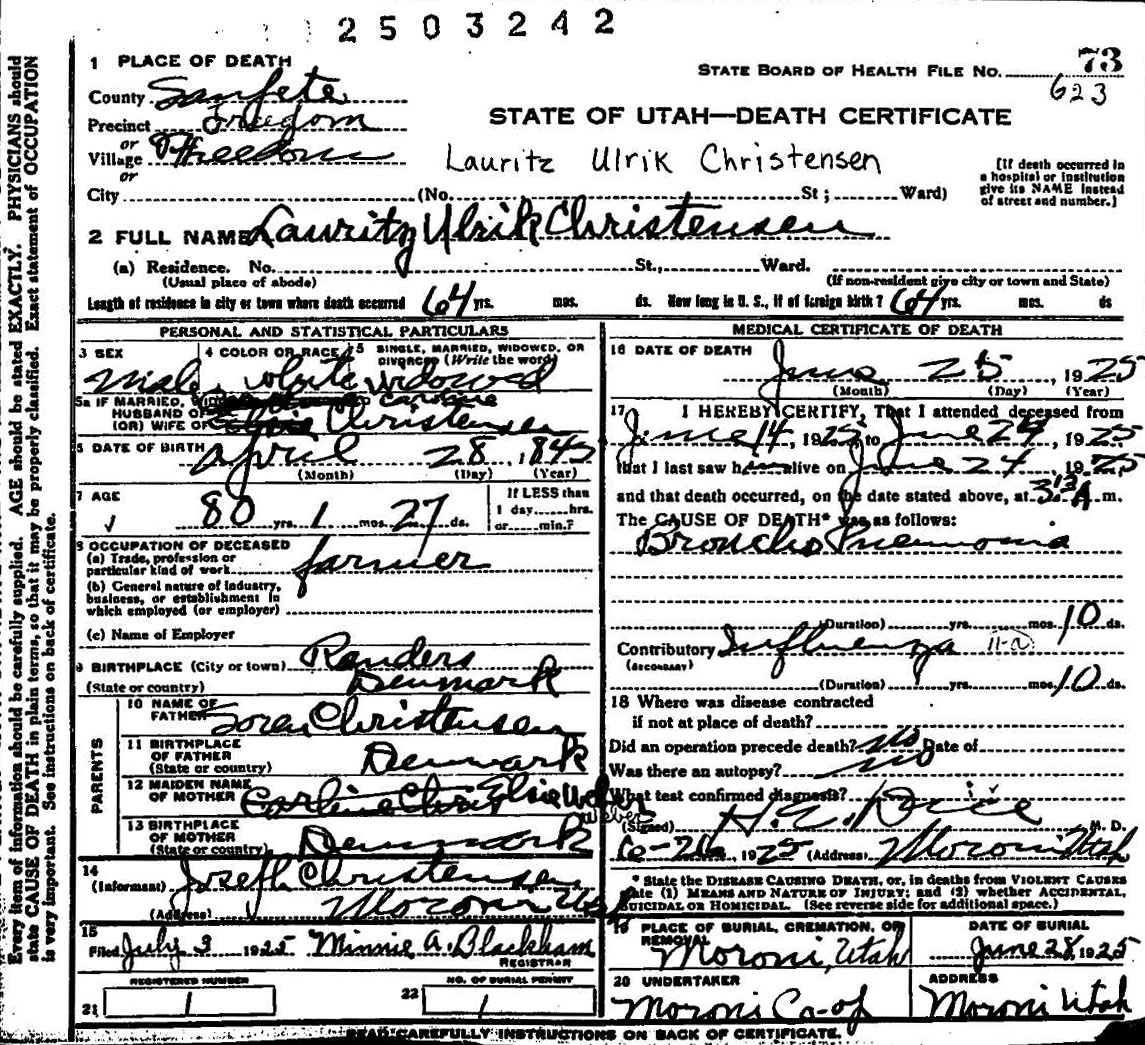 2503242
1 PLACE OF DEATH
STATE BOARD OF HEALTH FILE NO. 73
623
County Sanpete
Precinct Freedom
or
Village Freedom
or
STATE OF UTAH—DEATH CERTIFICATE
Lauritz Ulrik Christensen
(If death occurred in a hospital or institution give its NAME instead of street and number.)
City (No. St; Ward)
2 FULL NAME Lauritz Ulrik Christensen
(a) Residence. No. St., Ward.
(Usual place of abode) (If non-resident give city or town and State)
Length of residence in city or town where death occurred 64 yrs. mos. ds. How long in U. S., if of foreign birth? 64 yrs. mos. ds
PERSONAL AND STATISTICAL PARTICULARS
3 SEX 4 COLOR OR RACE 5 SINGLE, MARRIED, WIDOWED, OR DIVORCED (Write the word)
Male White Widowed
5a IF MARRIED,
HUSBAND OF
(OR) WIFE OF Caroline Christensen
6 DATE OF BIRTH April 28, 1845
(Month) (Day) (Year)
7 AGE 80 yrs. 1 mos. 27 ds.
If LESS than
1 day......hrs.
or......min.?
8 OCCUPATION OF DECEASED
(a) Trade, profession or
particular kind of work farmer
(b) General nature of industry,
business, or establishment in
which employed (or employer)
(c) Name of Employer
9 BIRTHPLACE (City or town) Randers
(State or country) Denmark
PARENTS
10 NAME OF
FATHER Soren Christensen
11 BIRTHPLACE
OF FATHER
(State or country) Denmark
12 MAIDEN NAME
OF MOTHER Carline Chris Elsie Weber
Weber
13 BIRTHPLACE
OF MOTHER
(State or country) Denmark
14
(Informant) Joseph Christensen
(Address) Moroni Utah
15
Filed July 3 1925 Minnie A. Blackham
REGISTRAR
REGISTERED NUMBER NO. OF BURIAL PERMIT
21 1 22 1
MEDICAL CERTIFICATE OF DEATH
16 DATE OF DEATH
June 25, 1925
(Month) (Day) (Year)
17 I HEREBY CERTIFY, That I attended deceased from
June 14, 1925, to June 24, 1925
that I last saw him alive on June 24, 1925
and that death occurred, on the date stated above, at 3:15 A m.
The CAUSE OF DEATH* was as follows:
Broncho Pneumonia
(Duration) yrs. mos. 10 ds.
Contributory Influenza 11-a
(SECONDARY)
(Duration) yrs. mos. 10 ds.
18 Where was disease contracted
if not at place of death?
Did an operation precede death? no Date of
Was there an autopsy? no
What test confirmed diagnosis?
(Signed) M. D.
6-26, 1925 (Address) Moroni Utah
* State the DISEASE CAUSING DEATH, or, in deaths from VIOLENT CAUSES
state (1) MEANS AND NATURE OF INJURY; and (2) whether ACCIDENTAL,
SUICIDAL OR HOMICIDAL. (See reverse side for additional space.)
19 PLACE OF BURIAL, CREMATION, OR REMOVAL DATE OF BURIAL
Moroni, Utah June 28, 1925
20 UNDERTAKER ADDRESS
Moroni Co-op Moroni Utah
READ CAREFULLY INSTRUCTIONS ON BACK OF CERTIFICATE.
Every item of information should be carefully supplied. AGE should be stated EXACTLY. PHYSICIANS should
state CAUSE OF DEATH in plain terms, so that it may be properly classified. Exact statement of OCCUPATION
is very important. See instructions on back of certificate.